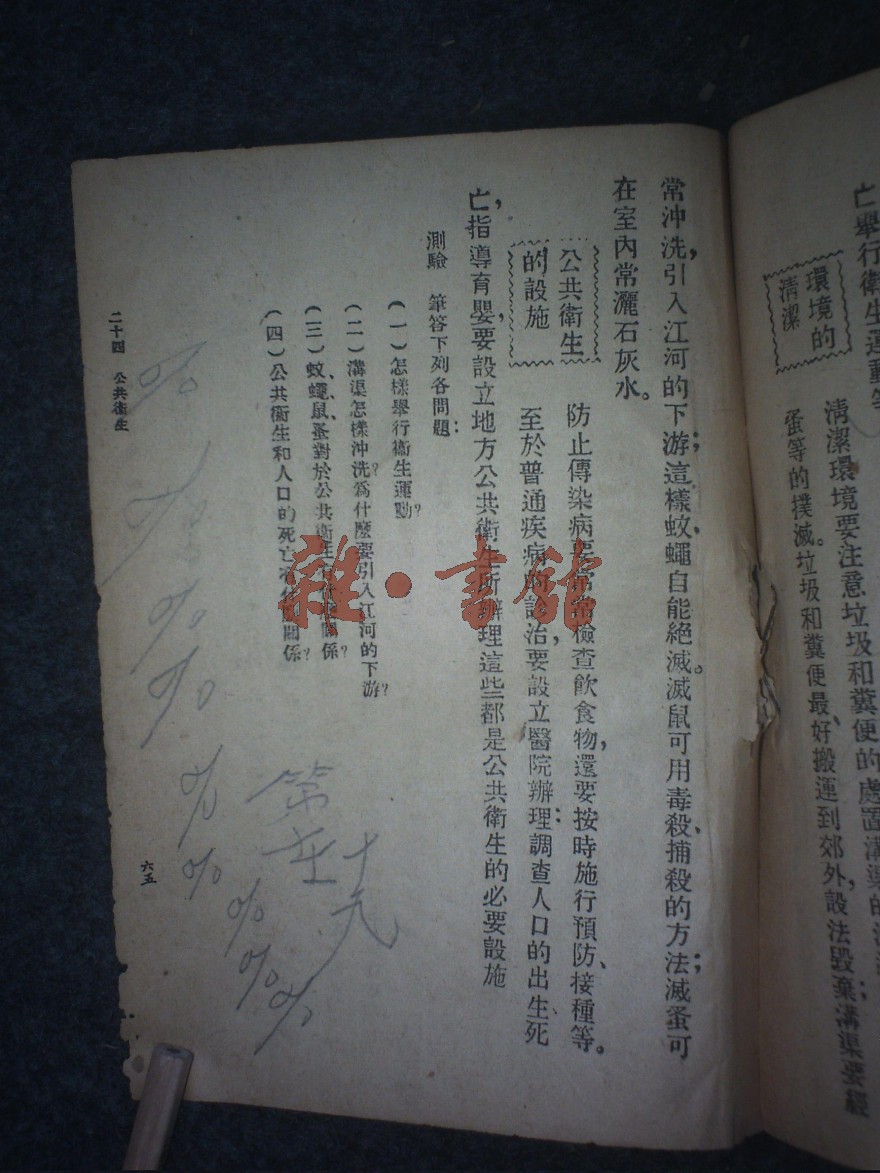 亡舉行衛生運動等
環境的
清潔
清潔環境要注意垃圾和糞便的處置溝渠的
蚤等的撲滅。垃圾和糞便最好、搬運到郊外，設法毀棄；溝渠要經
常沖洗，引入江河的下游；這樣、蚊蠅自能絕滅。滅鼠可用毒殺、捕殺的方法；滅蚤可
在室內常灑石灰水。
公共衛生
的設施
防止傳染病要常常檢查飲食物，還要按時施行預防、接種等。
至於普通疾病的診治，要設立醫院辦理；調查人口的出生、死
亡，指導育嬰，要設立地方公共衛生所辦理這些都是公共衛生的必要設施
測驗 筆答下列各問題：
（一）怎樣舉行衛生運動？
（二）溝渠怎樣沖洗？爲什麼要引入江河的下游？
（三）蚊、蠅、鼠、蚤對於公共衛生有什麼關係？
（四）公共衛生和人口的死亡有什麼關係？
二十四 公共衛生
六五
第
十九
雜·書館